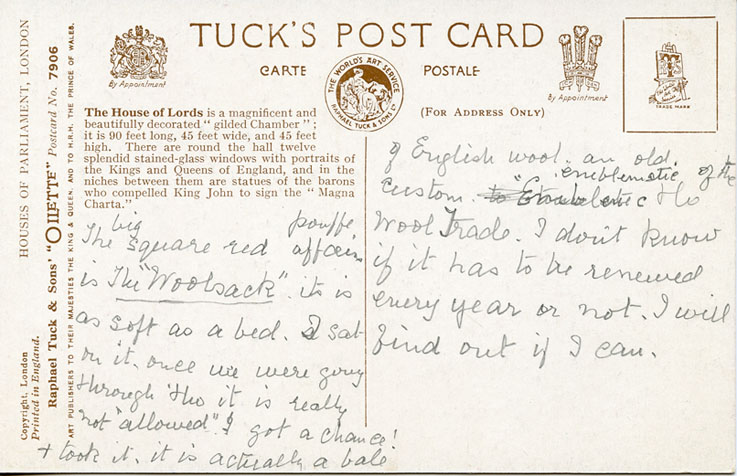 TUCK'S POST CARD
CARTE POSTALE
By Appointment
THE WORLD'S ART SERVICE
RAPHAEL TUCK & SONS LTD
By Appointment
TRADE MARK
(FOR ADDRESS ONLY)
HOUSES OF PARLIAMENT, LONDON
Raphael Tuck & Sons' "OILETTE" Postcard No. 7906
ART PUBLISHERS TO THEIR MAJESTIES THE KING & QUEEN, AND TO H.R.H. THE PRINCE OF WALES.
Copyright, London
Printed in England.
The House of Lords is a magnificent and
beautifully decorated "gilded Chamber";
it is 90 feet long, 45 feet wide, and 45 feet
high. There are round the hall twelve
splendid stained-glass windows with portraits of
the Kings and Queens of England, and in the
niches between them are statues of the barons
who compelled King John to sign the "Magna
Charta."
big pouffe
The square red affair
is The "Woolsack". it is
as soft as a bed. I sat
on it. once we were going
through 'tho it is really
not "allowed". I got a chance!
+ took it. it is actually a bale
of English wool. an old.
emblematic of the
custom.
Wool Trade. I don't know
if it has to be renewed
every year or not. I will
find out if I can.